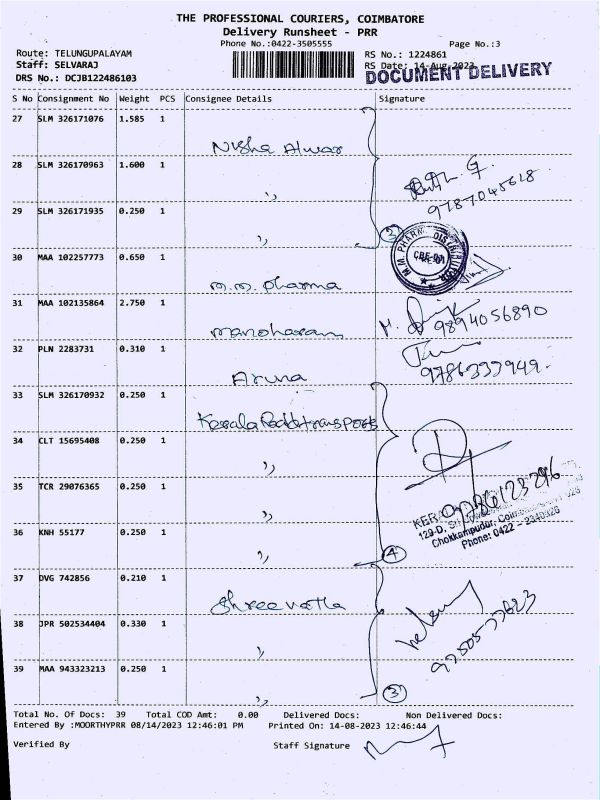 THE PROFESSIONAL COURIERS, COIMBATORE
Delivery Runsheet - PRR
Phone No.:0422-3505555
Page No.:3
Route: TELUNGUPALAYAM
RS No.: 1224861
Staff: SELVARAJ
RS Date: 14-Aug-2023
DOCUMENT DELIVERY
DRS No.: DCJB122486103
S No Consignment No Weight PCS Consignee Details Signature
27 SLM 326171076 1.585 1
Nisha Alwar
28 SLM 326170963 1.600 1
"
9787045618
29 SLM 326171935 0.250 1
" 3
M.M. PHARM. DISTRIBUTOR
30 MAA 102257773 0.650 1
m.m. pharma
31 MAA 102135864 2.750 1
manoharam 9894056890
32 PLN 2283731 0.310 1
Aruna 9786333949.
33 SLM 326170932 0.250 1
Kerala Roadtransport
34 CLT 15695408 0.250 1
"
35 TCR 29076365 0.250 1
"
9786123296
Chokkampudur, Coim
Phone: 0422 - 2340926
36 KNH 55177 0.250 1
" 4
37 DVG 742856 0.210 1
Shreevatla
38 JPR 502534404 0.330 1
"
39 MAA 943323213 0.250 1
" 3
Total No. Of Docs: 39 Total COD Amt: 0.00 Delivered Docs: Non Delivered Docs:
Entered By :MOORTHYPRR 08/14/2023 12:46:01 PM Printed On: 14-08-2023 12:46:44
Verified By Staff Signature